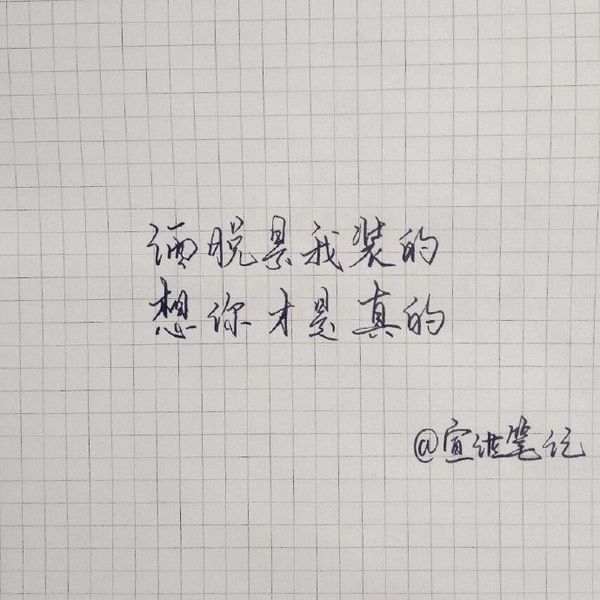 洒脱是我装的
想你才是真的
@宣洪笔记